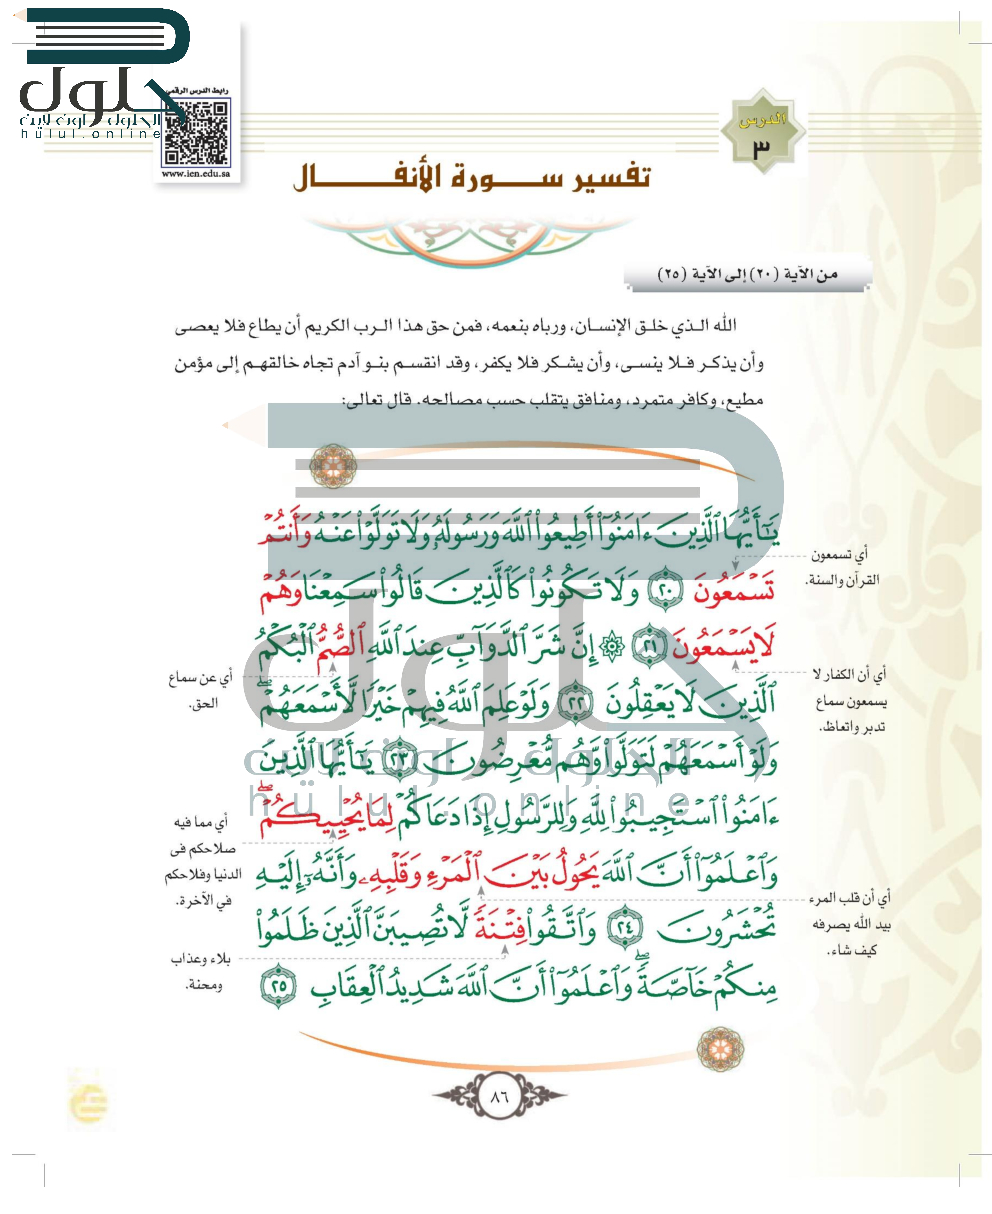 حلول
الحلول اون لاين
hülul.online
رابط الدرس الرقمي
www.ien.edu.sa
الدرس
٣
تفسير ســورة الأنفــال
من الآية (٢٠) إلى الآية (٢٥)
الله الـذي خلـق الإنسـان، ورباه بنعمه، فمن حق هذا الـرب الكريم أن يطاع فلا يعصى
وأن يذكـر فـلا ينسـى، وأن يشـكر فلا يكفر، وقد انقسـم بنـو آدم تجاه خالقهـم إلى مؤمن
مطيع، وكافر متمرد، ومنافق يتقلب حسب مصالحه. قال تعالى:
يَٰٓأَيُّهَا ٱلَّذِينَ ءَامَنُوٓا۟ أَطِيعُوا۟ ٱللَّهَ وَرَسُولَهُۥ وَلَا تَوَلَّوْا۟ عَنْهُ وَأَنتُمْ
تَسْمَعُونَ ٢٠ وَلَا تَكُونُوا۟ كَٱلَّذِينَ قَالُوا۟ سَمِعْنَا وَهُمْ
لَا يَسْمَعُونَ ٢١ ۞ إِنَّ شَرَّ ٱلدَّوَآبِّ عِندَ ٱللَّهِ ٱلصُّمُّ ٱلْبُكْمُ
ٱلَّذِينَ لَا يَعْقِلُونَ ٢٢ وَلَوْ عَلِمَ ٱللَّهُ فِيهِمْ خَيْرًا لَّأَسْمَعَهُمْ ۖ
وَلَوْ أَسْمَعَهُمْ لَتَوَلَّوا۟ وَّهُم مُّعْرِضُونَ ٢٣ يَٰٓأَيُّهَا ٱلَّذِينَ
ءَامَنُوا۟ ٱسْتَجِيبُوا۟ لِلَّهِ وَلِلرَّسُولِ إِذَا دَعَاكُمْ لِمَا يُحْيِيكُمْ ۖ
وَٱعْلَمُوٓا۟ أَنَّ ٱللَّهَ يَحُولُ بَيْنَ ٱلْمَرْءِ وَقَلْبِهِۦ وَأَنَّهُۥٓ إِلَيْهِ
تُحْشَرُونَ ٢٤ وَٱتَّقُوا۟ فِتْنَةً لَّا تُصِيبَنَّ ٱلَّذِينَ ظَلَمُوا۟
مِنكُمْ خَآصَّةً ۖ وَٱعْلَمُوٓا۟ أَنَّ ٱللَّهَ شَدِيدُ ٱلْعِقَابِ ٢٥
أي تسمعون
القرآن والسنة.
أي أن الكفار لا
يسمعون سماع
تدبر واتعاظ.
أي أن قلب المرء
بيد الله يصرفه
كيف شاء.
أي عن سماع
الحق.
أي مما فيه
صلاحكم فى
الدنيا وفلاحكم
في الآخرة.
بلاء وعذاب
ومحنة.
حلول
الحلول اون لاين
hülul.online
٨٦